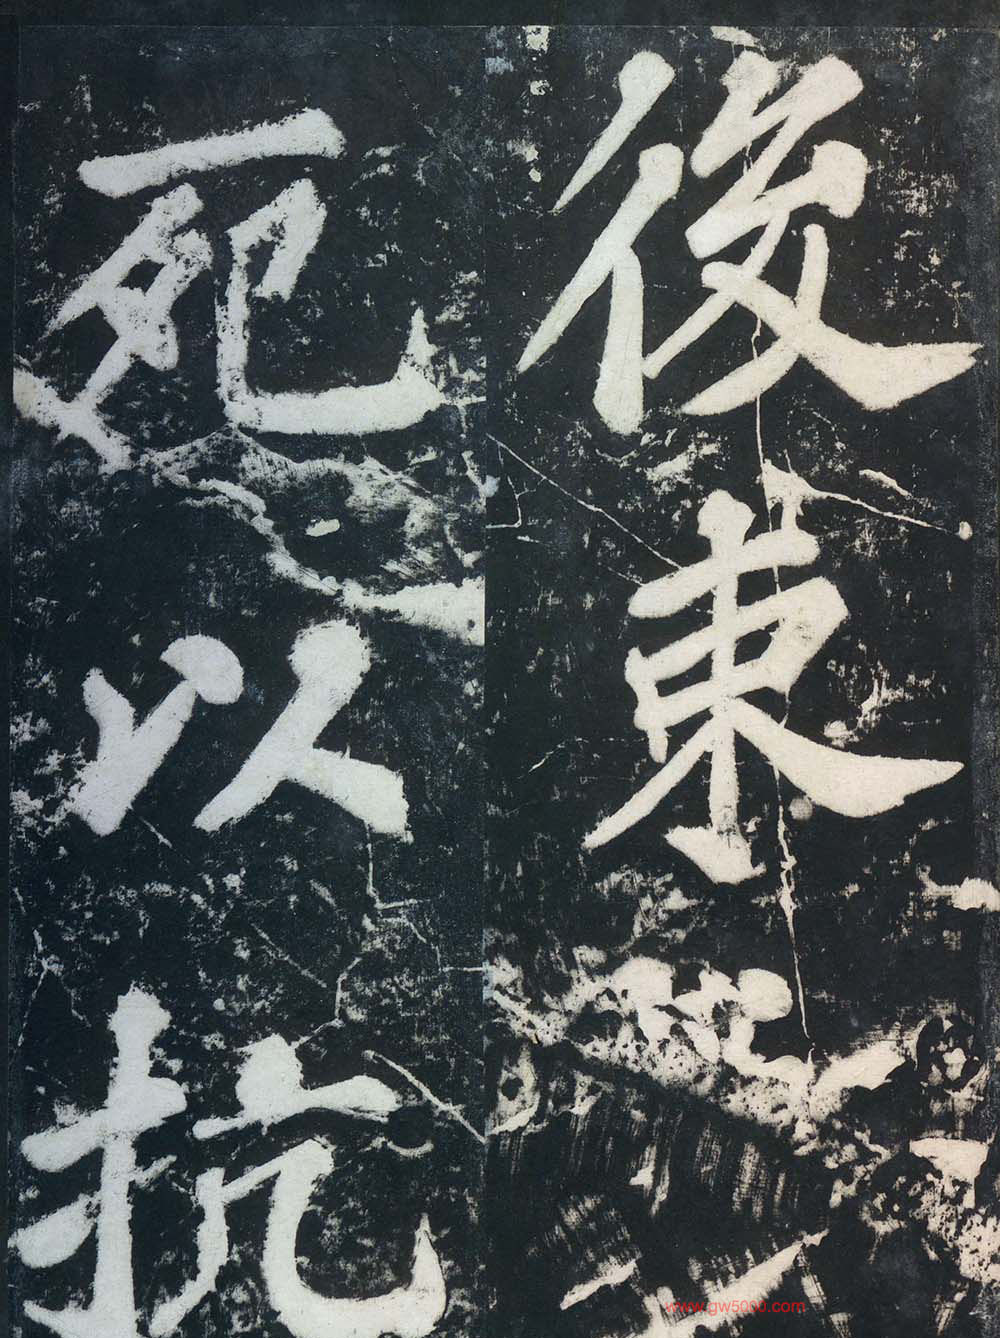 後東
死以抗
www.gw5000.com